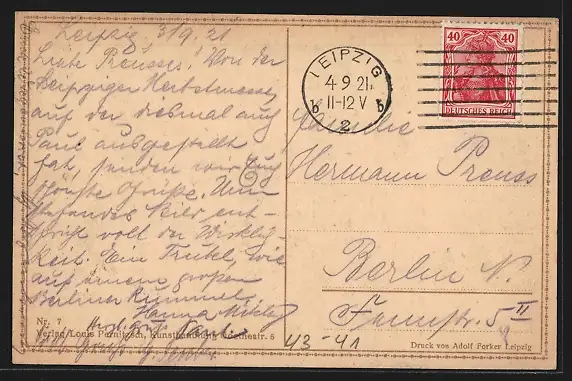 Leipzig 3/9. 21
Liebe Preusses! Von der
Leipziger Herbstmesse,
auf der diesmal auch
Paul ausgestellt
hat, senden wir Euch
schönste Grüße. Um-
stehendes Bild ent-
spricht voll der Wirklich-
keit. Ein Trubel, wie
auf einem großen
Berliner Rummel.
Hanna
Nr. 7
Verlag Louis Pernitzsch, Kunstanstalt, Goethestr. 6
LEIPZIG
4 9 21
11-12 V
b b
2
40 40
DEUTSCHES REICH
Familie
Hermann Preuss
Berlin N.
5 II
43-41
Druck von Adolf Forker Leipzig